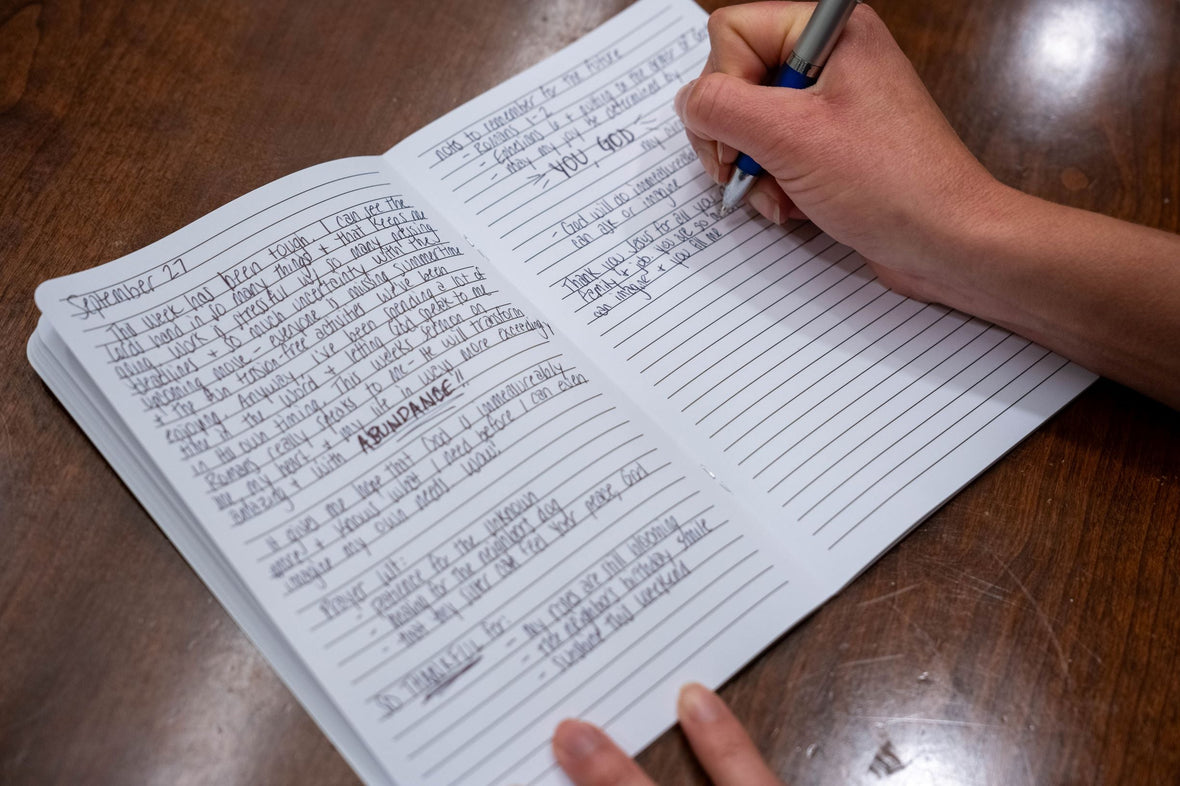 September 27
This week has been tough. I can see the
Lord's hand in so many things + that keeps me
going. Work is stressful w/ so many pressing
deadlines + so much uncertainty with the
upcoming move - everyone is missing summertime
+ the fun tension-free activities we've been
enjoying. Anyway, I've been spending a lot of
time in the Word + letting God speak to me
in its own timing. This week's sermon on
Romans really speaks to me - He will transform
me, my heart + my life in ways more exceedingly
amazing + with ABUNDANCE!!
It gives me hope that God is immeasureably
more! + knows what I need before I can even
imagine my own needs. Wow!
Prayer list:
- patience for the unknown
- healing for the neighbor's dog
- that my sister can feel your peace, God
SO THANKFUL for:
- my roses are still blooming
- the neighbor's birthday smile
- sunshine this weekend
note to remember for the future
- Romans 1-2
- Ephesians 6 + putting on the armor of God
- may my joy be determined by
YOU, GOD
- God will do immeasureably
can ask or imagine
Thank you Jesus for all your
family + job. You are so
can imagine + you fill me